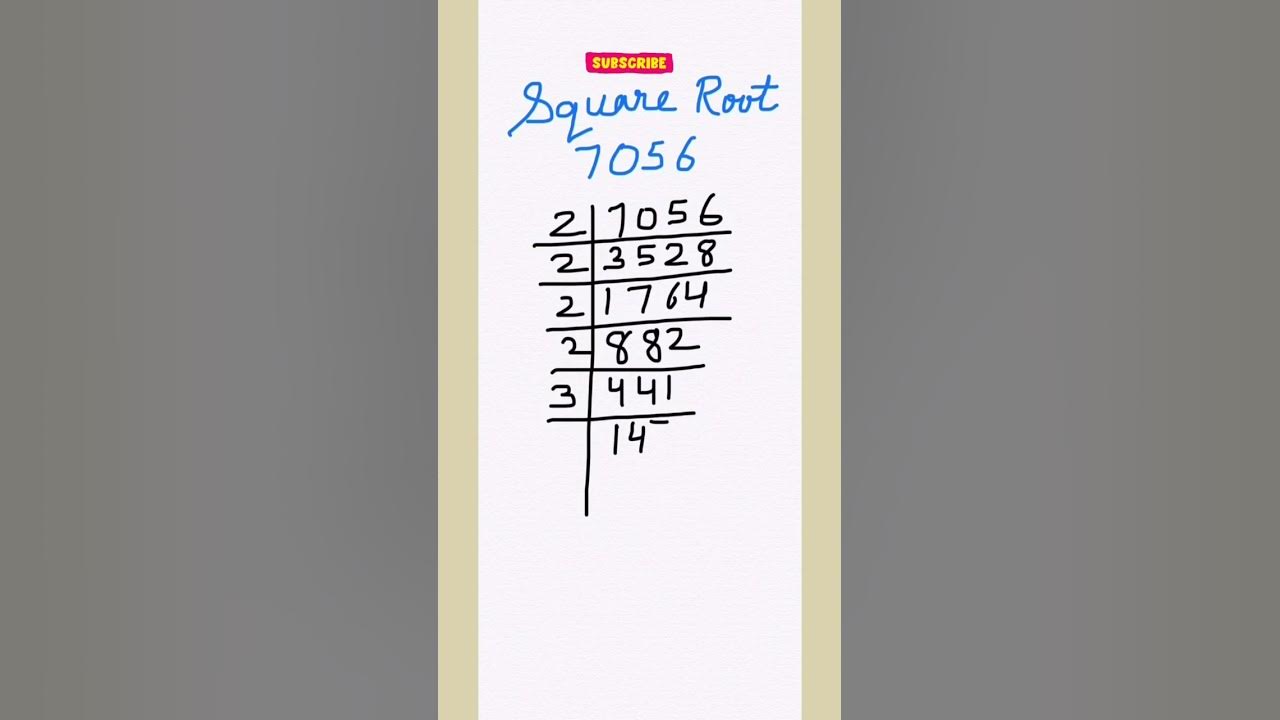 SUBSCRIBE
Square Root
7056
2 7056
2 3528
2 1764
2 882
3 441
14